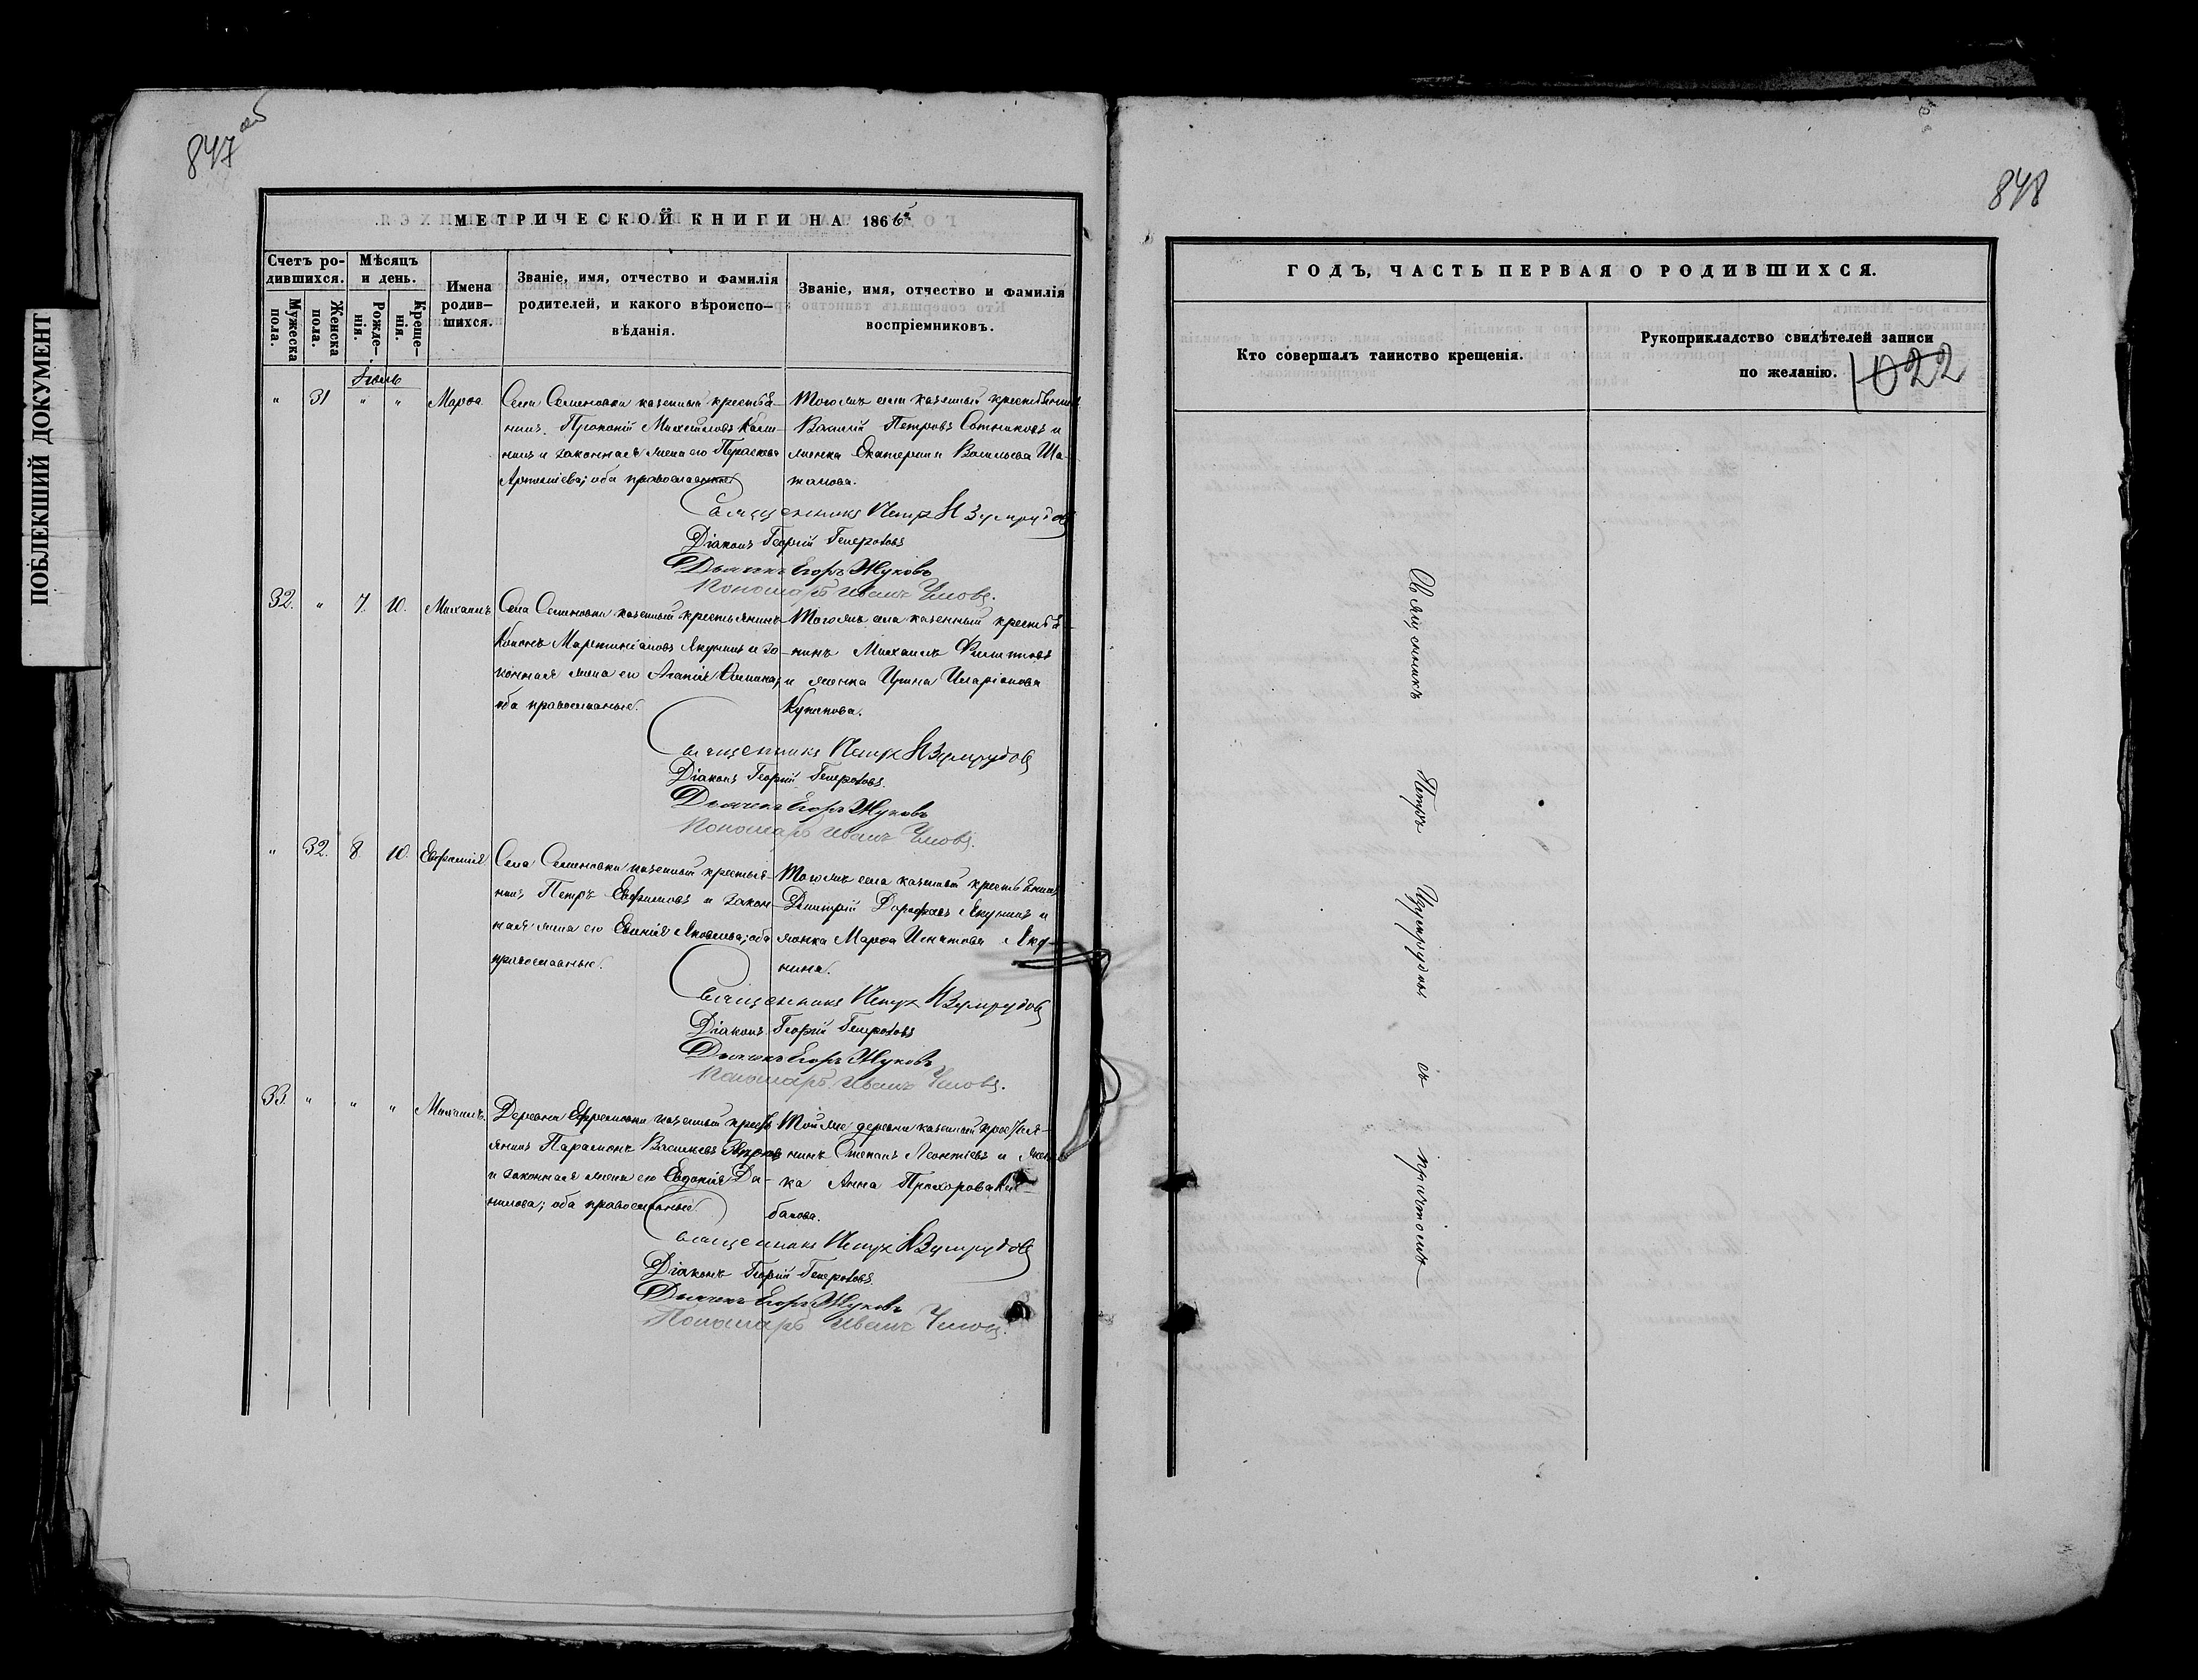 ПОБЛЕКШИЙ ДОКУМЕНТ
847 об
МЕТРИЧЕСКОЙ КНИГИ НА 1866й
Счетъ родившихся.
Мужеска пола.
Женска пола.
Мѣсяцъ и день.
Рожденія.
Крещенія.
Имена родившихся.
Званіе, имя, отчество и фамилія
родителей, и какого вѣроиспо-
вѣданія.
Званіе, имя, отчество и фамилія
воспріемниковъ.
Іюль
" 31 " " Марѳа
Села Семеновки казенный крестья-
нинъ Прокопій Михайловъ
и законная жена его Параскева
оба православные
Тогоже села казенный крестьянинъ
Василій Петровъ Сотниковъ и
женка Екатерина Васильева Ша-
талова.
Священникъ Петръ Изумрудовъ
Діаконъ Георгій Генерозовъ
Дьячекъ Егоръ Жуковъ
Пономарь Иванъ Умовъ.
32. " 7. 10. Михаилъ
Села Семеновки казенный крестьянинъ
Кононъ Мартиніановъ Якунинъ и за-
конная жена его Агапія
оба православные.
Тогоже села казенный крестья-
нинъ Михаилъ Филиповъ
и женка Ирина Иларіонова
Священникъ Петръ Изумрудовъ
Діаконъ Георгій Генерозовъ.
Дьячекъ Егоръ Жуковъ
Пономарь Иванъ Умовъ.
" 32. 8. 10. Евфимія
Села Семеновки казенный крестья-
нинъ Петръ Евфимовъ и закон-
ная жена его Евгенія Яковлева; оба
православные.
Тогоже села казенный крестьянинъ
Димитрій Дорофеевъ Якунинъ и
женка Марѳа Игнатова Яку-
нина.
Священникъ Петръ Изумрудовъ
Діаконъ Георгій Генерозовъ
Дьячекъ Егоръ Жуковъ
Пономарь Иванъ Умовъ.
33. " " " Михаилъ.
Деревни Ефремовки казенный кресть-
янинъ Парамонъ Васильевъ
и законная жена его Евдокія Да-
нилова; оба православные.
Той же деревни казенный крестья-
нинъ Степанъ Леонтіевъ и жен-
ка Анна Прохорова
Священникъ Петръ Изумрудовъ
Діаконъ Георгій Генерозовъ.
Дьячекъ Егоръ Жуковъ
Пономарь Иванъ Умовъ.
848
ГОДЪ, ЧАСТЬ ПЕРВАЯ О РОДИВШИХСЯ.
Кто совершалъ таинство крещенія.
Рукоприкладство свидѣтелей записи
по желанію.
1022
Священникъ Петръ Изумрудовъ съ причтомъ